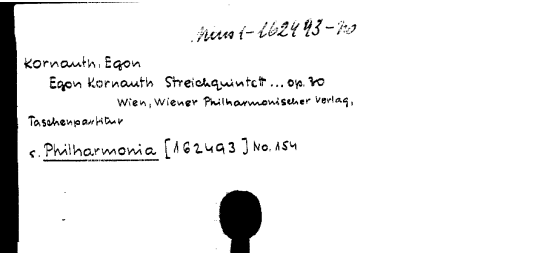 Mus 1-162493-30
Kornauth, Egon
Egon Kornauth Streichquintett ... op. 30
Wien, Wiener Philharmonischer Verlag,
Taschenpartitur
s. Philharmonia [162493] No. 154